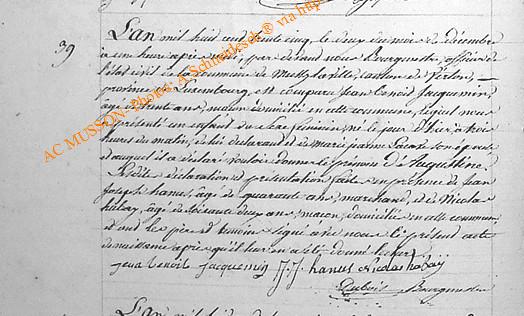 39
L'an mil huit cent trente cinq, le deux du mois de décembre
à une heure après midi, par devant nous Bourgmestre, officier de
l'état civil de la commune de Musson, canton de Virton,
province de Luxembourg, est comparu Jean Benoit Jacquemin,
âgé de trente ans, maçon domicilié en cette commune, lequel nous
a présenté un enfant du sexe féminin, né le jour d'hier, à trois
heures du matin, de lui déclarant et de Marie jeanne son épouse
et auquel il a déclaré vouloir donner le prénom D'Augustine.
déclaration et présentation faite en présence de Jean
Joseph hanus, âgé de quarante ans, marchand, et de Nicolas
habay, âgé de soixante deux ans, maçon, domiciliés en cette commune
et ont les père et témoins signé avec nous le présent acte
de naissance après qu'il leur en a été donné lecture
jean benoit jacquemin J. J. hanus nicolas habay
Dubois Bourgmestre
L'an mil huit
AC MUSSON- Photo: A. Schneidesch ® via http